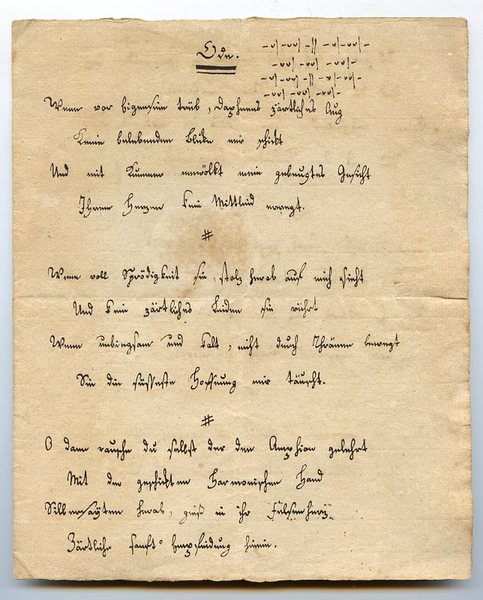 Ode.
Wenn vor Eigensinn trüb, Daphnens zärtliches Aug
Keine belebenden Blicke mir schickt
Und mit Kummer umwölkt mein gebeugtes Gesicht
Ihrem Herzen kein Mittleid erregt.
#
Wenn voll Sprödigkeit sie, stolz herab auf mich sieht
Und kein zärtliches Leiden sie rührt
Wenn unbiegsam und kalt, nicht durch Thränen bewegt
Sie die süsseste Hoffnung mir täuscht.
#
O dann rausche du selbst der den Amphion gelehrt
Mit der geschickten Harmonischen Hand
Silbersayten herab, gieß in ihr Felsenherz
Zärtliche sanfte Empfindung hinein.